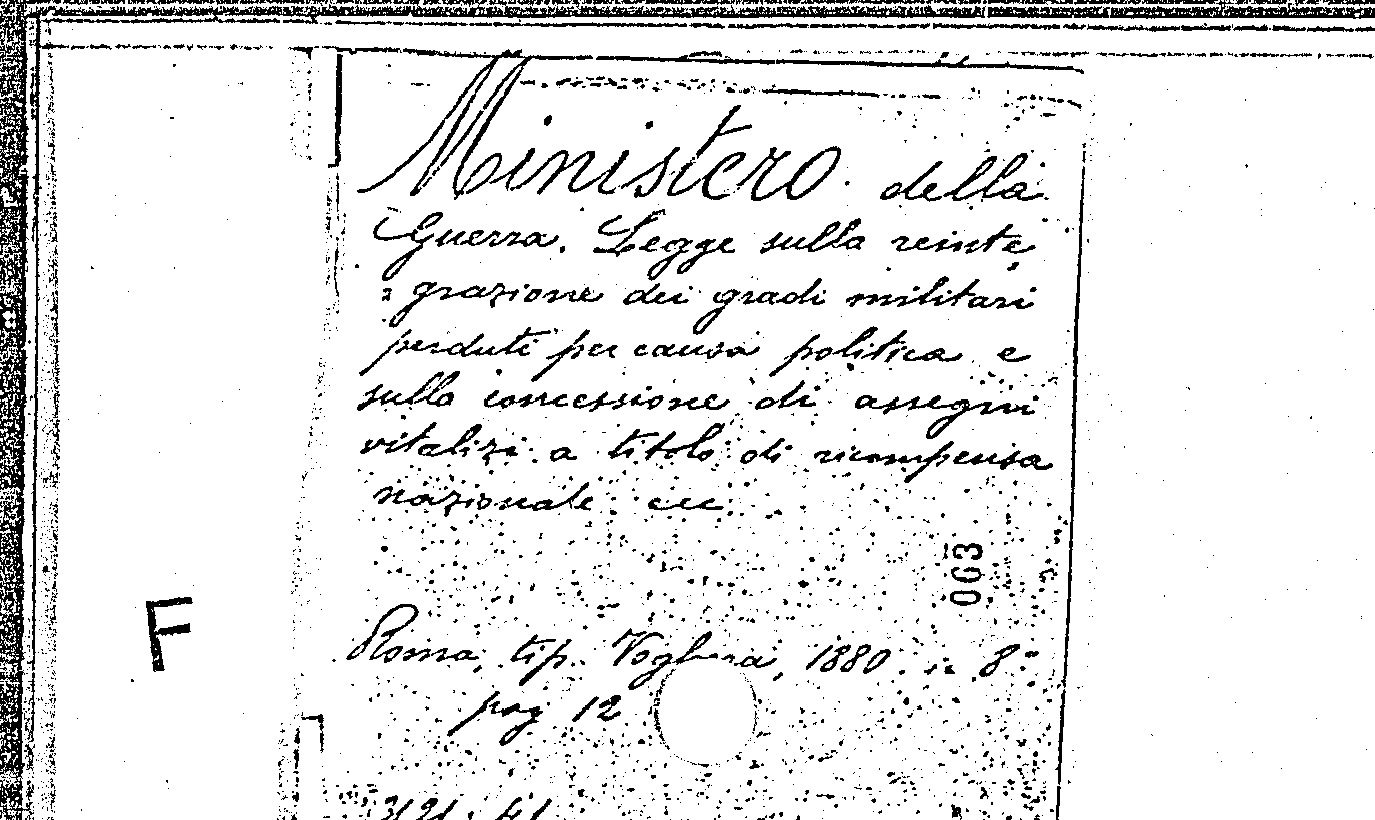 Ministero della
Guerra. Legge sulla reinte
= grazione dei gradi militari
perduti per causa politica e
sulla concessione di assegni
vitalizi a titolo di ricompensa
nazionale ecc.
003
F
Roma, tip. Voghera, 1880 in 8°
pag 12